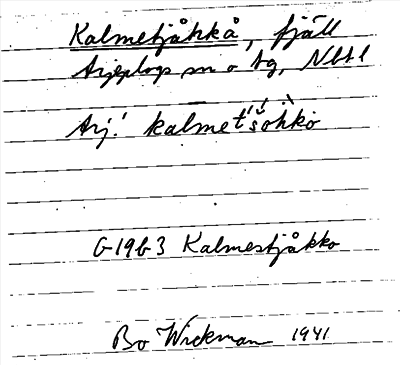 Kalmetjåkkå, fjäll
Arjeplogs sn o tg, Nbt l
Arj. kalmet́š́òhkò
G-19G3 Kalmestjåkko
Bo Wickman 1941